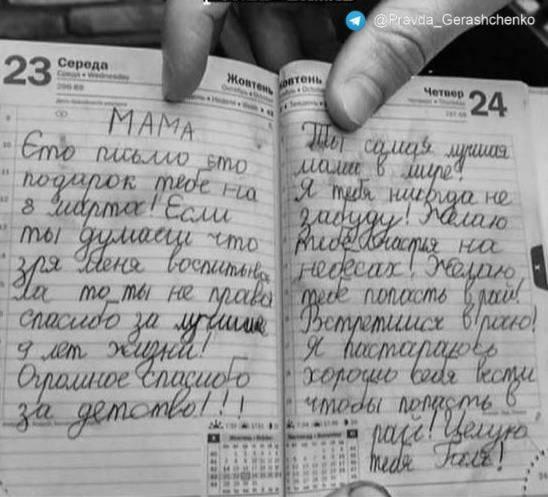 @Pravda_Gerashchenko
23 Середа
Среда • Wednesday
Жовтень
МАМА
Ето письмо ето
подарок тебе на
8 марта! Если
ты думаеш что
зря меня воспитыва
ла то ты не права
спасибо за лучшие
9 лет жизни!
Огромное спасибо
за детство!!!
Жовтень
Четвер 24
Ты самая лучшая
мама в мире!
Я тебя никогда не
забуду! Желаю
тебе счастья на
небесах! Желаю
тебе попасть в рай!
Встретимся в раю!
Я постараюсь
хорошо себя вести
чтобы попасть в
рай! Целую
тебя Галя!